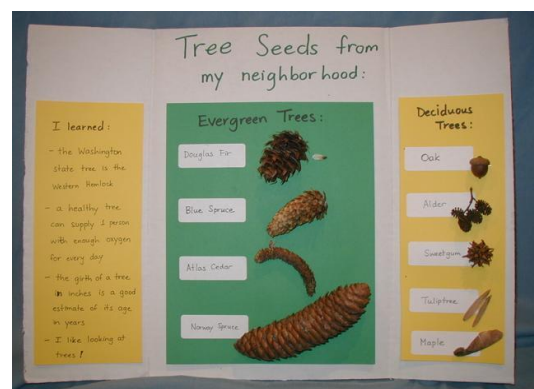 Tree Seeds from
my neighborhood:
I learned:
- the Washington
state tree is the
Western Hemlock
- a healthy tree
can supply 1 person
with enough oxygen
for every day
- the girth of a tree
in inches is a good
estimate of its age
in years
- I like looking at
trees!
Evergreen Trees:
Douglas Fir
Blue Spruce
Atlas Cedar
Norway Spruce
Deciduous
Trees:
Oak
Alder
Sweetgum
Tuliptree
Maple